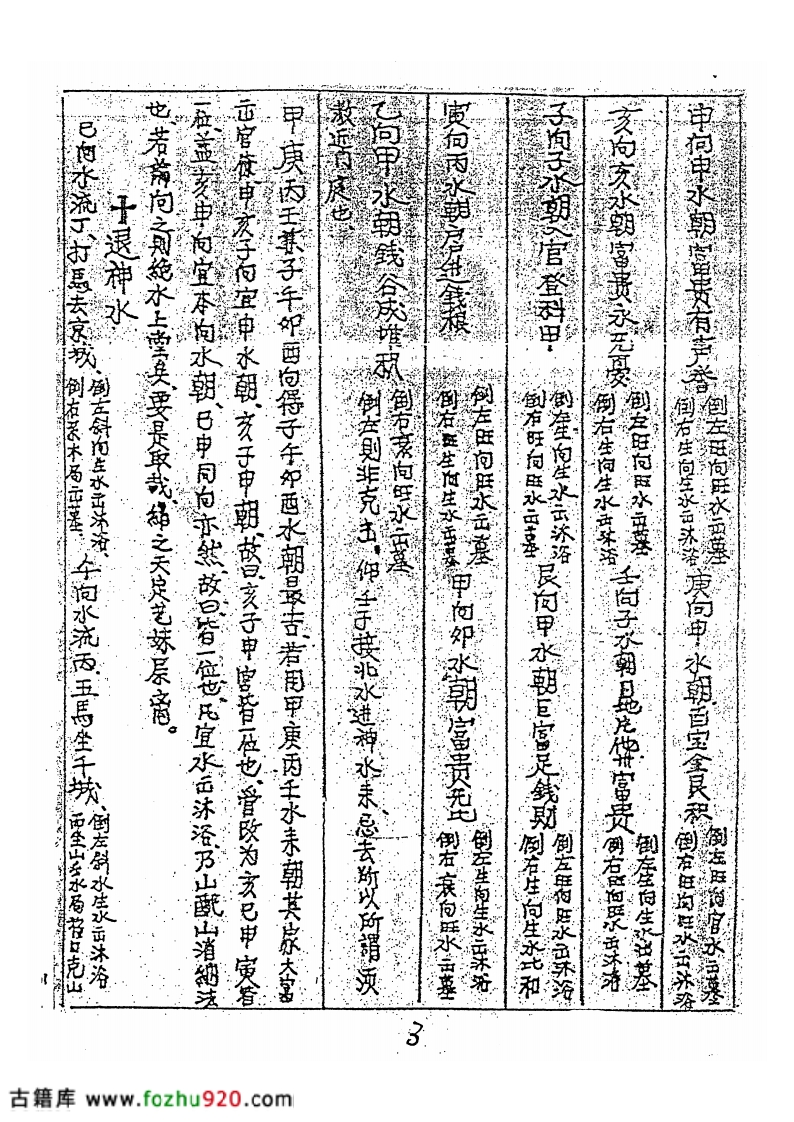 申向申水朝富贵有声誉 倒左旺向旺水出墓 倒右生向生水出沐浴 庚向申水朝百宝金良积 倒左旺向官水出墓 倒右旺向旺水出沐浴
亥向亥水朝富贵永无忧 倒左旺向旺水出墓 倒右生向生水出沐浴 壬向子水朝 富贵 倒左生向生水出墓 倒右旺向旺水出沐浴
子向子水朝入官登科甲 倒左生向生水出沐浴 倒右旺向旺水出墓 艮向甲水朝巨富足錢財 倒左旺向旺水出沐浴 倒右生向生水比和
寅向丙水朝户进錢粮 倒左旺向旺水出墓 倒右旺生向生水出墓 甲向卯水朝富贵无比 倒左生向生水出沐浴 倒右衰向旺水出墓
乙向甲水朝錢谷成堆积 倒右亥向旺水出墓 倒左则非克出，仰壬子接北水进神水来、忌去所以所謂须
救近门庭也、
甲庚丙壬兼子午卯酉向得子午卯酉水朝最吉、若用甲庚丙壬水来朝其家大富
出官僚、申亥子向宜申水朝、亥子申朝、故曰亥子申宫皆一位也、曾改为亥巳申寅皆
一位、盖亥申向宜本向水朝、巳申同向亦然、故曰皆一位也、凡宜水出沐浴、乃山 山消纳法
也、若 向之则絶水上堂矣、要是取哉、 之天定艺
十退神水
巳向水流丁、打馬去京城、倒左斜向生水出沐浴、倒右 木局出墓 午向水流丙、五馬坐千城、倒左斜水生水出沐浴 而坐山 水局 克山
3
古籍库 www.fozhu920.com